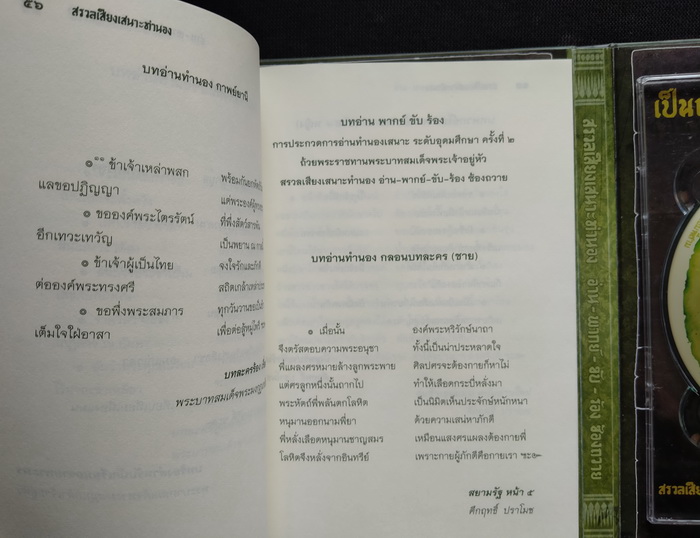 ๕๖ สรวลเสียงเสนาะทำนอง
บทอ่านทำนอง กาพย์ยานี
๏ ข้าเจ้าเหล่าพสก
แลขอปฏิญญา
๏ ขอองค์พระไตรรัตน์
อีกเทวะเทวัญ
๏ ข้าเจ้าผู้เป็นไทย
ต่อองค์พระทรงศรี
๏ ขอพึ่งพระสมภาร
เต็มใจใฝ่อาสา
บทละครร้อง
พระบาทสมเด็จพระมงกุฎ
บทอ่าน พากย์ ขับ ร้อง
การประกวดการอ่านทำนองเสนาะ ระดับอุดมศึกษา ครั้งที่ ๒
ถ้วยพระราชทานพระบาทสมเด็จพระเจ้าอยู่หัว
สรวลเสียงเสนาะทำนอง อ่าน-พากย์-ขับ-ร้อง ซ้องถวาย
บทอ่านทำนอง กลอนบทละคร (ชาย)
๏ เมื่อนั้น องค์พระหริรักษ์นาถา
จึงตรัสตอบความพระอนุชา ทั้งนี้เป็นน่าประหลาดใจ
พี่แผลงศรหมายล้างลูกพระพาย ศิลปศรจะต้องกายก็หาไม่
แต่ศรลูกหนึ่งนั้นถากไป ทำให้เลือดกระบี่หลั่งมา
พระหัตถ์พี่พลันตกโลหิต เป็นนิมิตเห็นประจักษ์หนักหนา
หนุมานออกนามพี่ยา ด้วยความเสน่หาภักดี
พี่หลั่งเลือดหนุมานชาญสมร เหมือนแสงศรแผลงต้องกายพี่
โลหิตจึงหลั่งจากอินทรีย์ เพราะกายผู้ภักดีคือกายเรา ฯะ๛
สยามรัฐ หน้า ๕
คึกฤทธิ์ ปราโมช
สรวลเสียงเสนาะทำนอง อ่าน - พากย์ - ขับ - ร้อง ซ้องถวาย